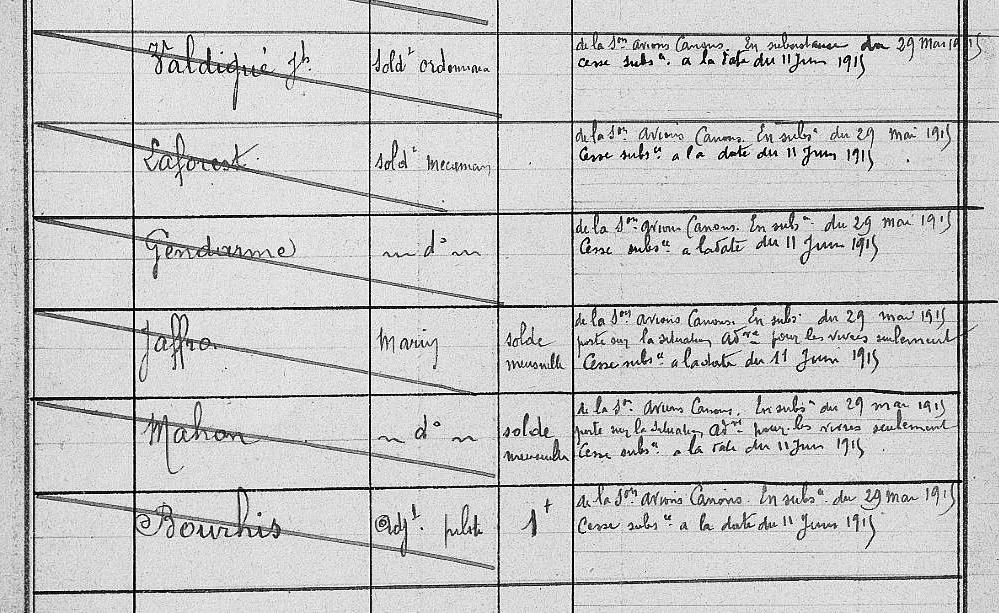 Valdiqué Jh. soldt ordonnance de la Son avions Canons. En subsistance du 29 Mai 1915
Cesse subsce à la date du 11 Juin 1915
Laforest soldt mécanicien de la Son avions Canons. En subsce du 29 mai 1915
Cesse subsce à la date du 11 Juin 1915
Gendarme d° de la Son avions Canons. En subsce du 29 mai 1915
Cesse subsce à la date du 11 Juin 1915
Jaffro Marin solde mensuelle de la Son avions Canons. En subs. du 29 mai 1915
porte sur la situation adve pour les vivres seulement
Cesse subsce à la date du 11 Juin 1915
Mahon d° solde mensuelle de la Son avions Canons. En subsce du 29 mai 1915
porte sur la situation adve pour les vivres seulement
Cesse subsce à la date du 11 Juin 1915
Bourhis Adjt. pilote 1 de la Son avions Canons. En subsce du 29 Mai 1915
Cesse subsce à la date du 11 Juin 1915